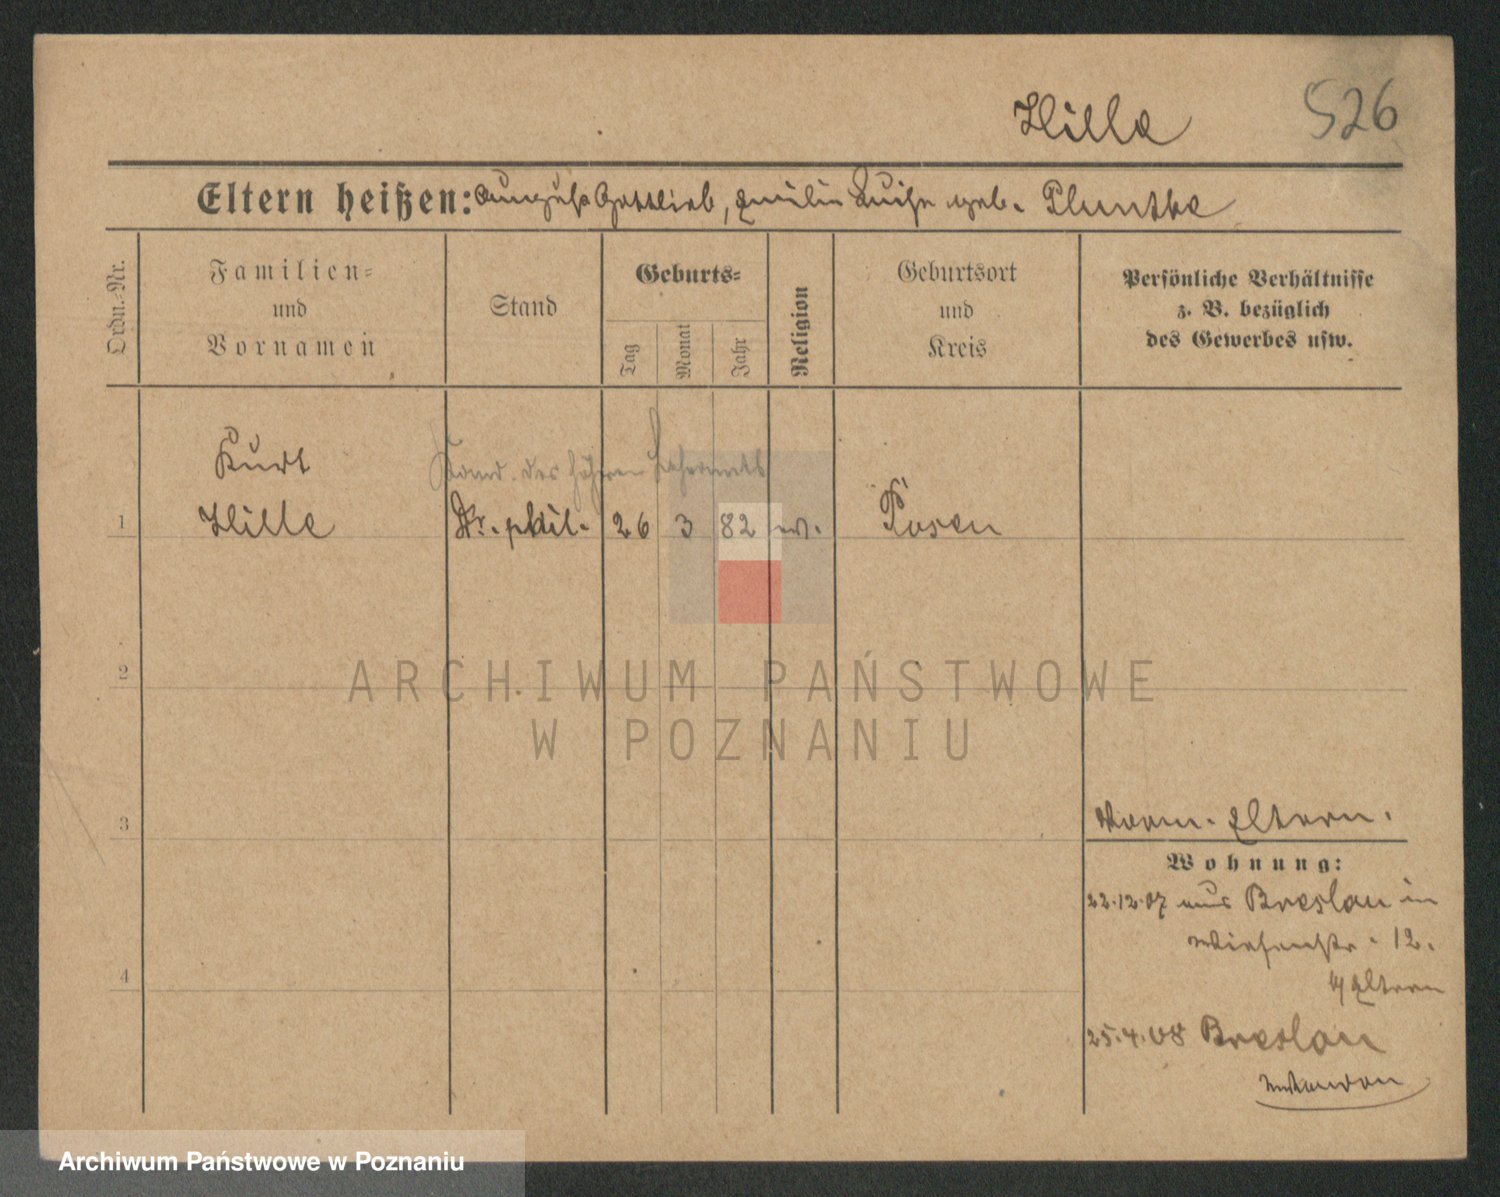 Hille 526
Eltern heißen: August Gottlieb, Emilie Luise geb. Pluntke
Ordn.-Nr.
Familien-
und
Vornamen
Stand
Geburts-
Tag
Monat
Jahr
Religion
Geburtsort
und
Kreis
Persönliche Verhältnisse
z. B. bezüglich
des Gewerbes usw.
Kand. des höheren Lehramts
Kurt
1 Hille Dr. phil. 26 3 82 ev. Posen
2
ARCHIWUM PAŃSTWOWE
W POZNANIU
3
Eltern.
Wohnung:
22.12.07 aus Breslau in
Wiesenstr. 12.
b/ Eltern
4
25.4.08 Breslau
Archiwum Państwowe w Poznaniu